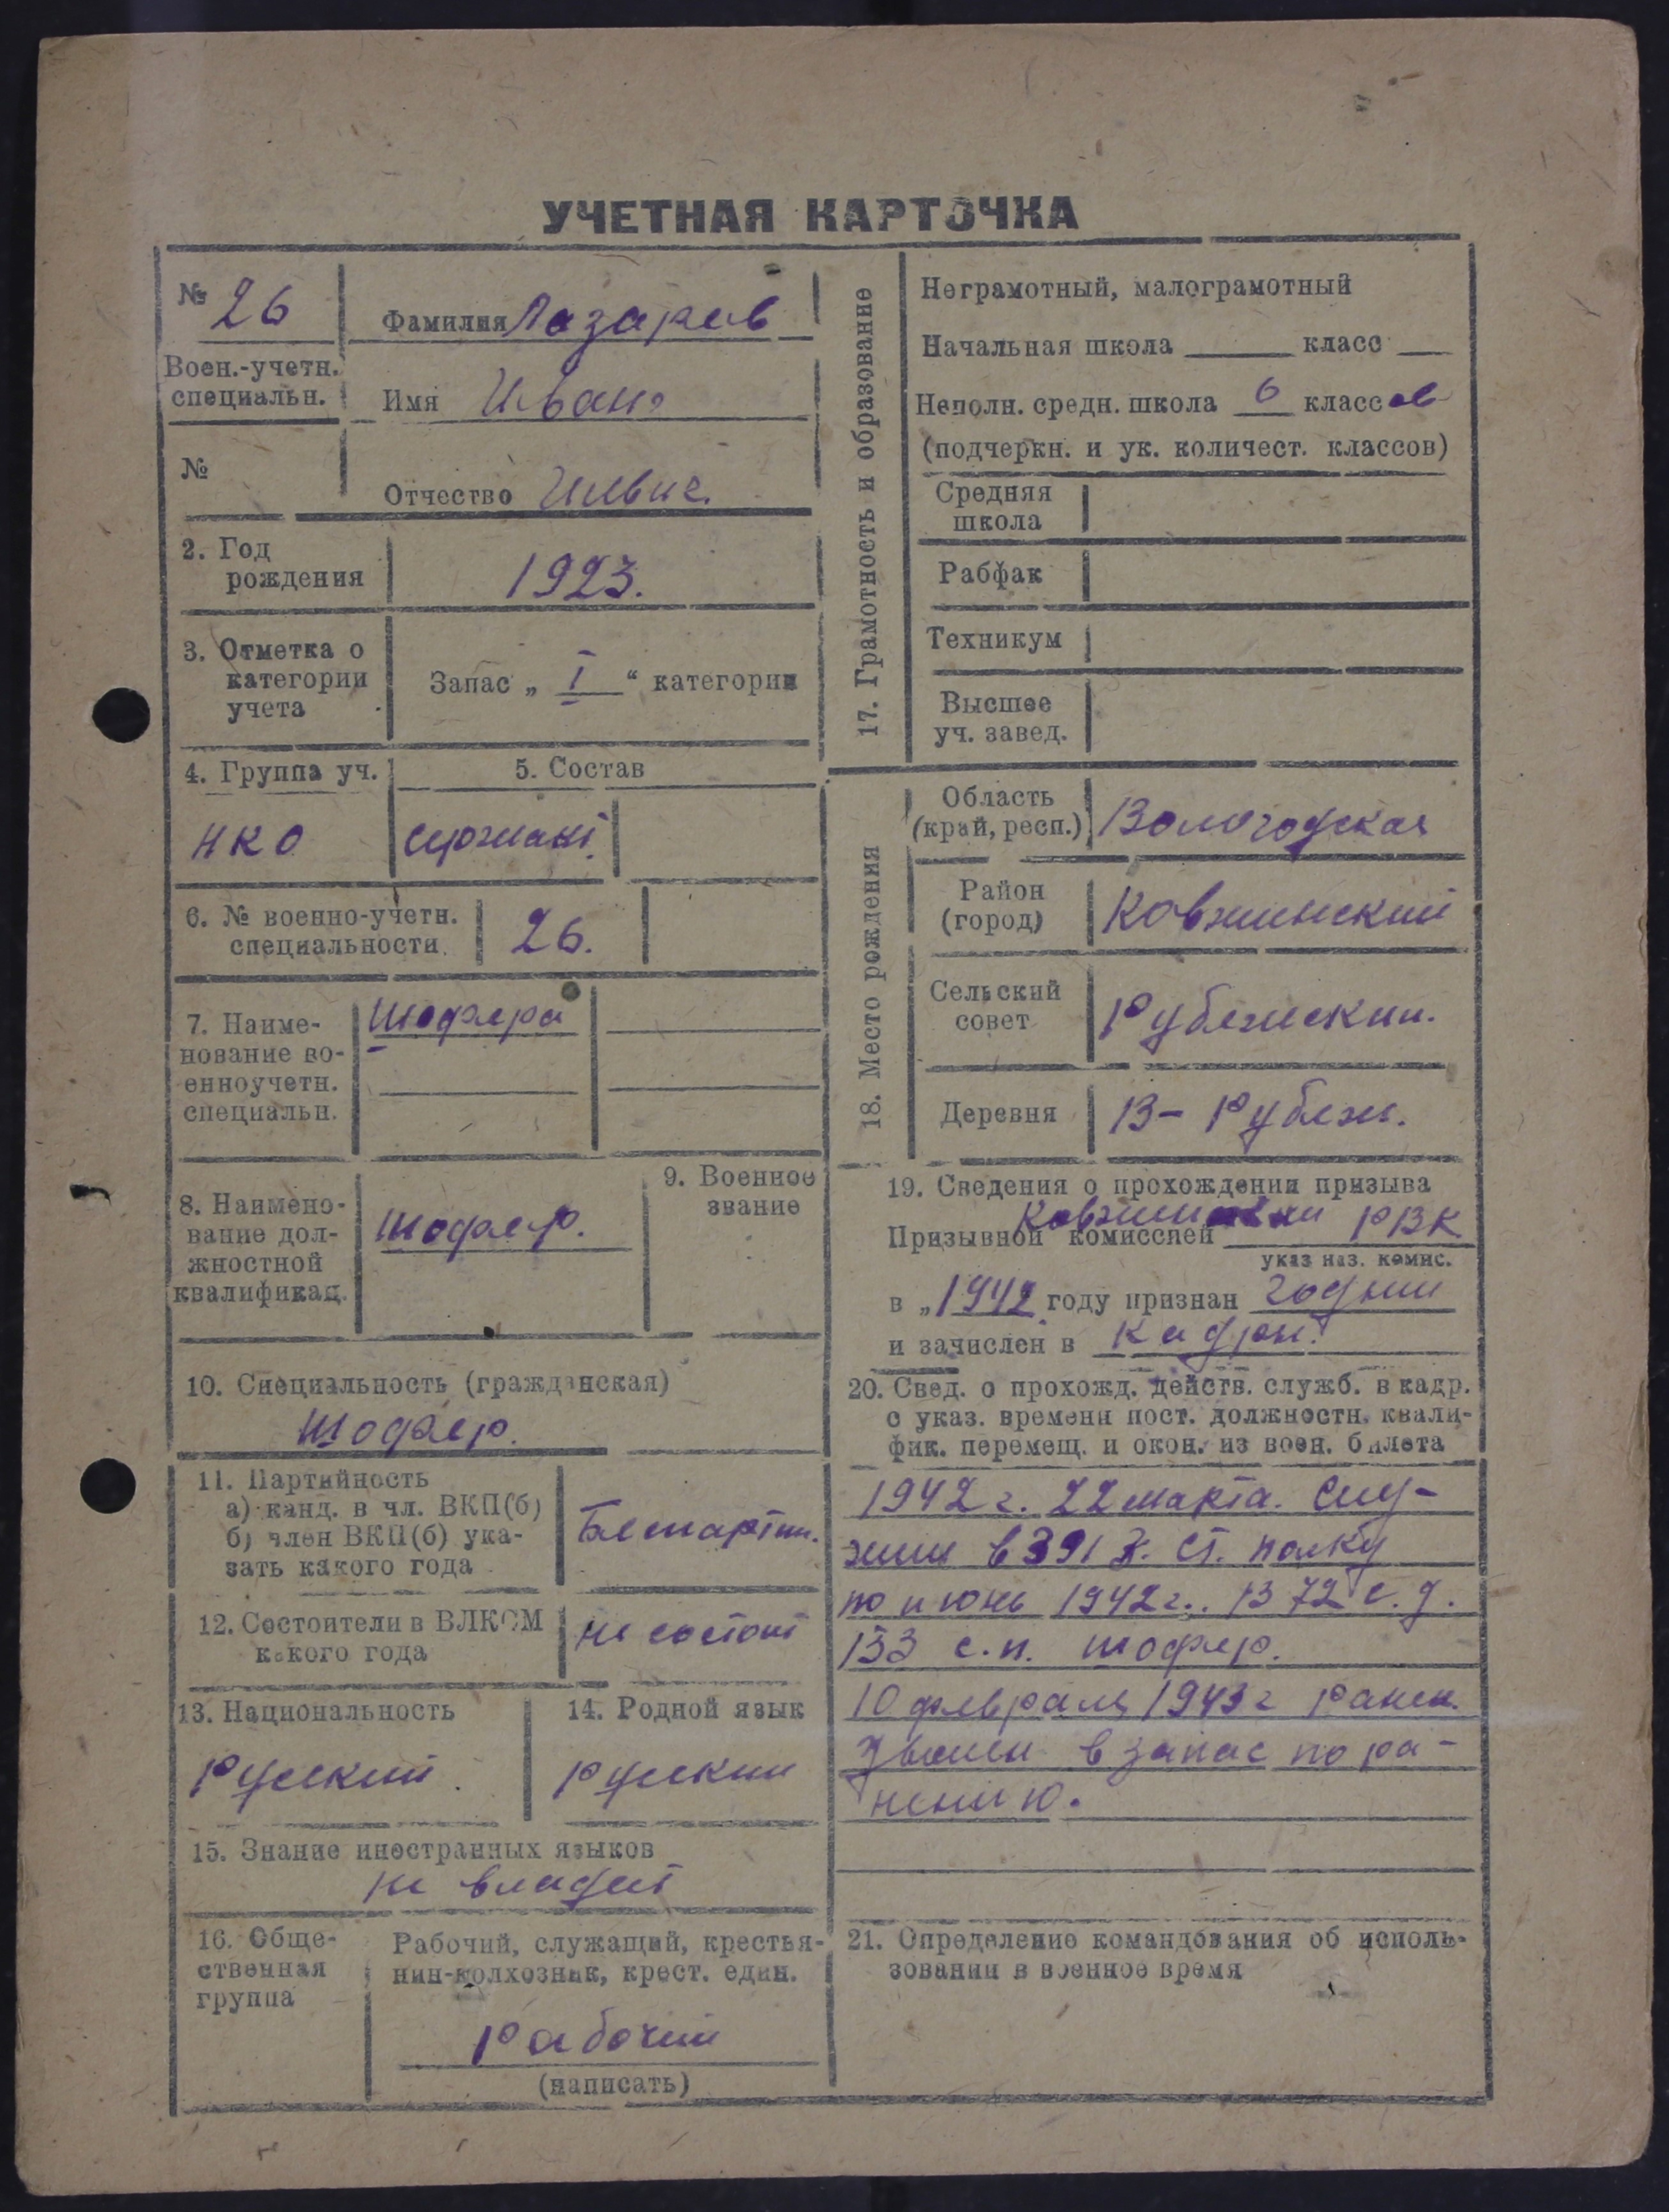 УЧЕТНАЯ КАРТОЧКА
№ 26
Фамилия Лазарев
Воен.-учетн. специальн.
Имя Иван
№
Отчество Ильич.
2. Год рождения
1923.
3. Отметка о категории учета
Запас „ I “ категории
4. Группа уч.
5. Состав
НКО
сержант
6. № военно-учетн. специальности.
26.
7. Наиме-
нование во-
енноучетн.
специальн.
Шофера
8. Наимено-
вание дол-
жностной
квалификац.
Шофер.
9. Военное
звание
10. Специальность (гражданская)
Шофер.
11. Партийность
а) канд. в чл. ВКП(б)
б) член ВКП(б) ука-
зать какого года
Беспартий.
12. Состоители в ВЛКСМ
какого года
не состоит
13. Национальность
Русский
14. Родной язык
Русский
15. Знание иностранных языков
не владеет
16. Обще-
ственная
группа
Рабочий, служащий, крестья-
нин-колхозник, крест. един.
Рабочий
(написать)
17. Грамотность и образование
Неграмотный, малограмотный
Начальная школа класс
Неполн. средн. школа 6 классов
(подчеркн. и ук. количест. классов)
Средняя
школа
Рабфак
Техникум
Высшее
уч. завед.
18. Место рождения
Область
(край, респ.)
Вологодская
Район
(город)
Ковжинский
Сельский
совет
Рубежский.
Деревня
В- Рубеж.
19. Сведения о прохождении призыва
Призывной комиссией РВК
указ наз. комис.
в „1942 году признан годным
и зачислен в кадры.
20. Свед. о прохожд. действ. служб. в кадр.
с указ. времени пост. должностн. квали-
фик. перемещ. и окон. из воен. билета
1942 г. 22 марта. Слу-
жил в 391 з. ст. полку
по июнь 1942 г. В 72 с. д.
133 с.п. шофер.
10 февраля 1943 г ранен.
Уволен в запас по ра-
нению.
21. Определение командования об исполь-
зовании в военное время